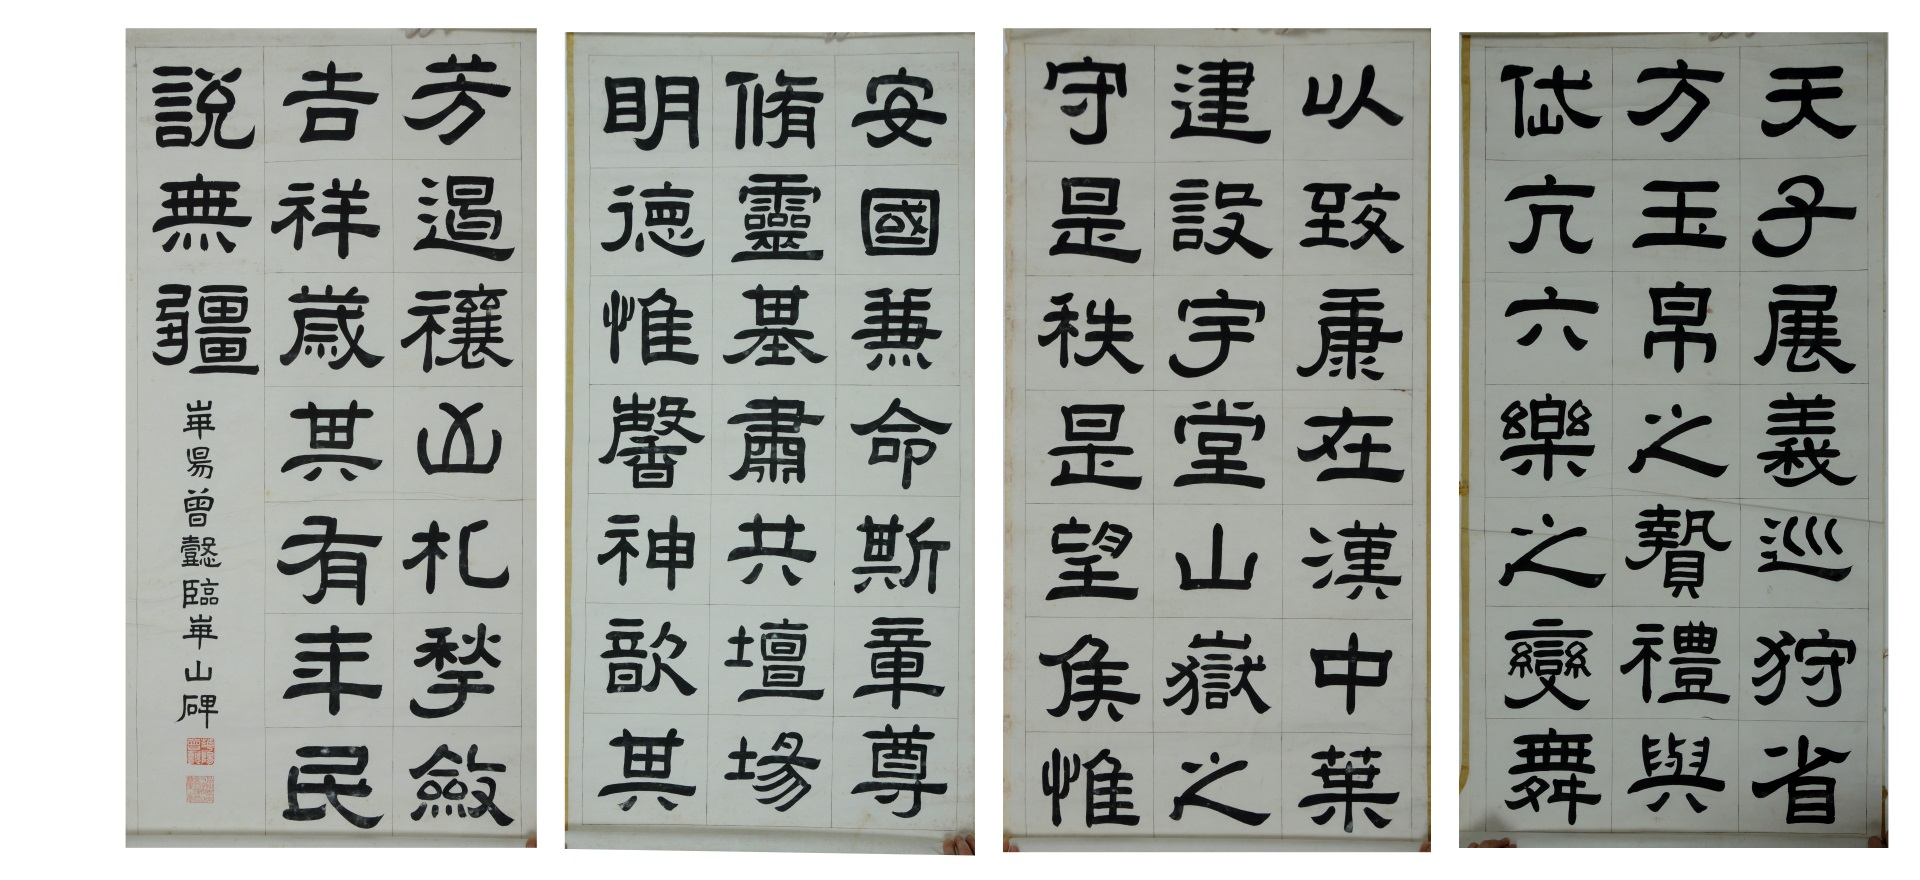 天子展義巡狩省
方玉帛之贄禮與
岱亢六樂之變舞
以致康在漢中葉
建設宇堂山嶽之
守是秩是望侯惟
安國兼命斯章尊
脩靈基肅共壇場
明德惟馨神歆其
芳遏禳凶札揫斂
吉祥歲其有年民
說無疆
華陽曾懿臨華山碑